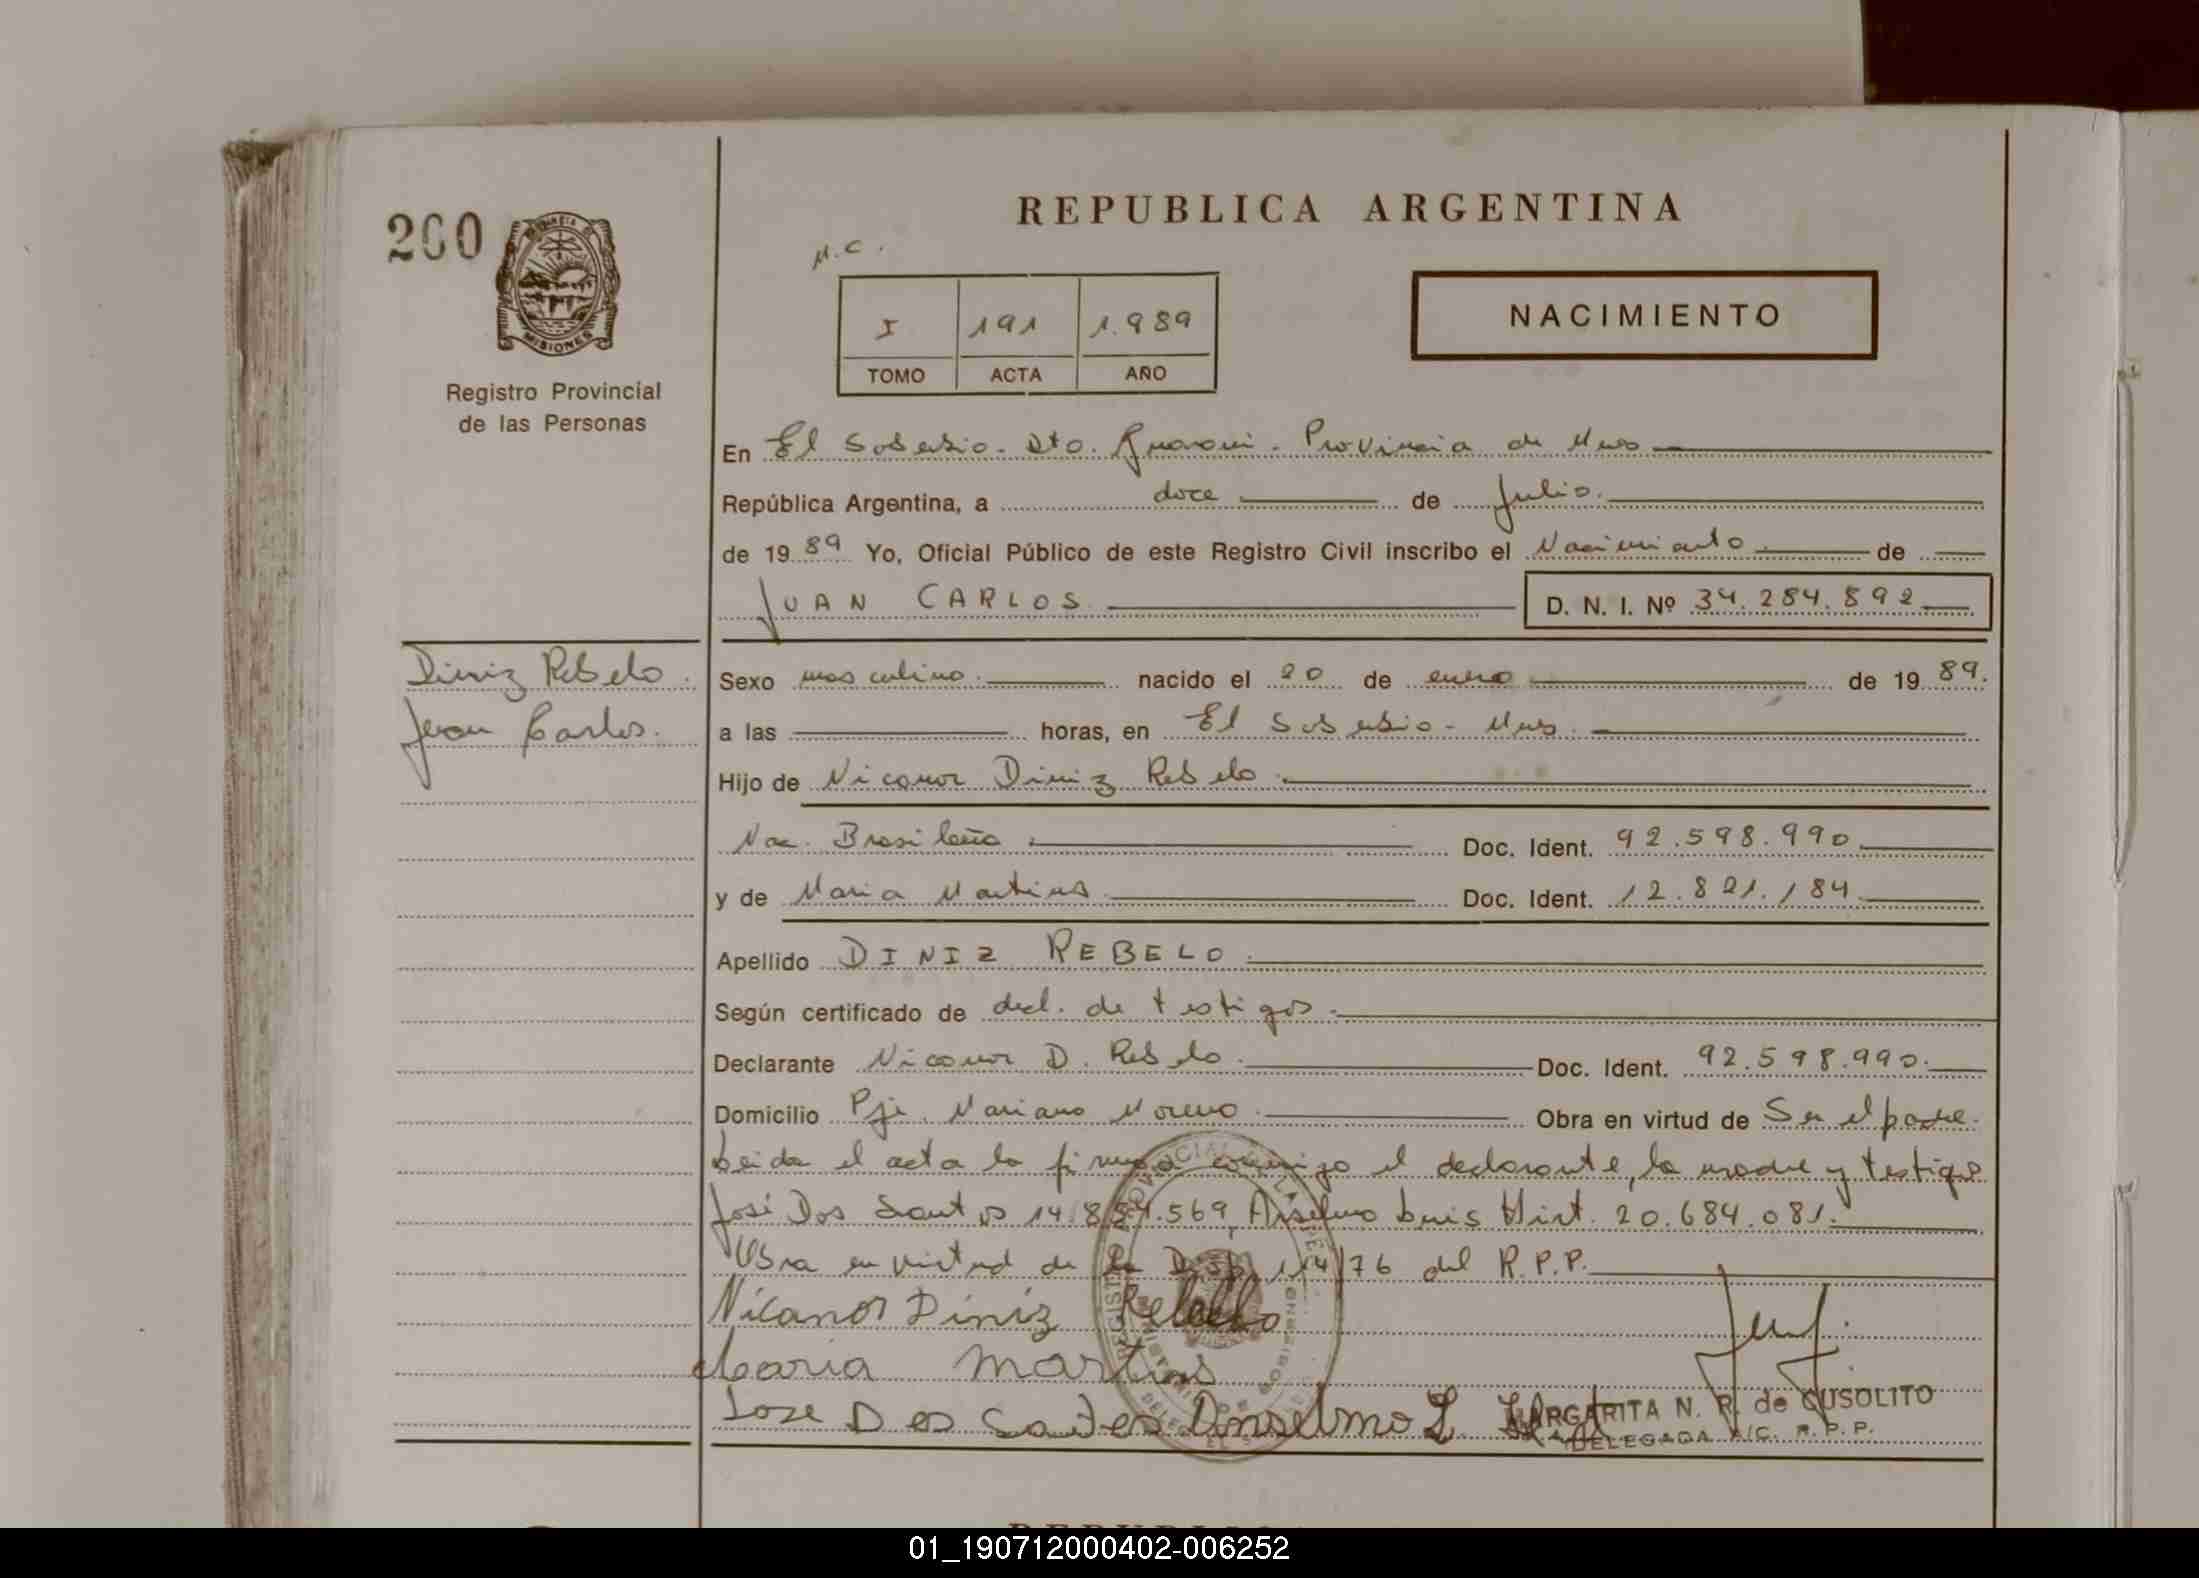 REPUBLICA ARGENTINA
200
PROVINCIA DE
MISIONES
N.C.
NACIMIENTO
I 191 1.989
TOMO ACTA AÑO
Registro Provincial
de las Personas
En El Soberbio - Dto. Guarani - Provincia de Mnes
República Argentina, a doce de Julio.
de 19 89 Yo, Oficial Público de este Registro Civil inscribo el Nacimiento de
JUAN CARLOS D. N. I. Nº 34.284.892
Diniz Rebelo.
Juan Carlos.
Sexo masculino. nacido el 20 de enero de 19 89.
a las horas, en El Soberbio - Mnes.
Hijo de Nicanor Diniz Rebelo.
Nac. Brasileña. Doc. Ident. 92.598.990
y de Maria Martins Doc. Ident. 12.821.184
Apellido DINIZ REBELO.
Según certificado de decl. de testigos.
Declarante Nicanor D. Rebelo. Doc. Ident. 92.598.990.
Domicilio Pje. Mariano Moreno. Obra en virtud de Ser el padre.
Leida el acta la firma conmigo el declarante, la madre y testigos
José Dos Santos 14.884.569, Anselmo Luis Hirt. 20.684.081.
Obra en virtud de la Disp. 114/76 del R.P.P.
Nicanor Diniz Rebelo
Maria Martins
Jose Dos Santos Anselmo L.
MARGARITA N. R. de CUSOLITO
DELEGADA A/C. R. P. P.
01_190712000402-006252